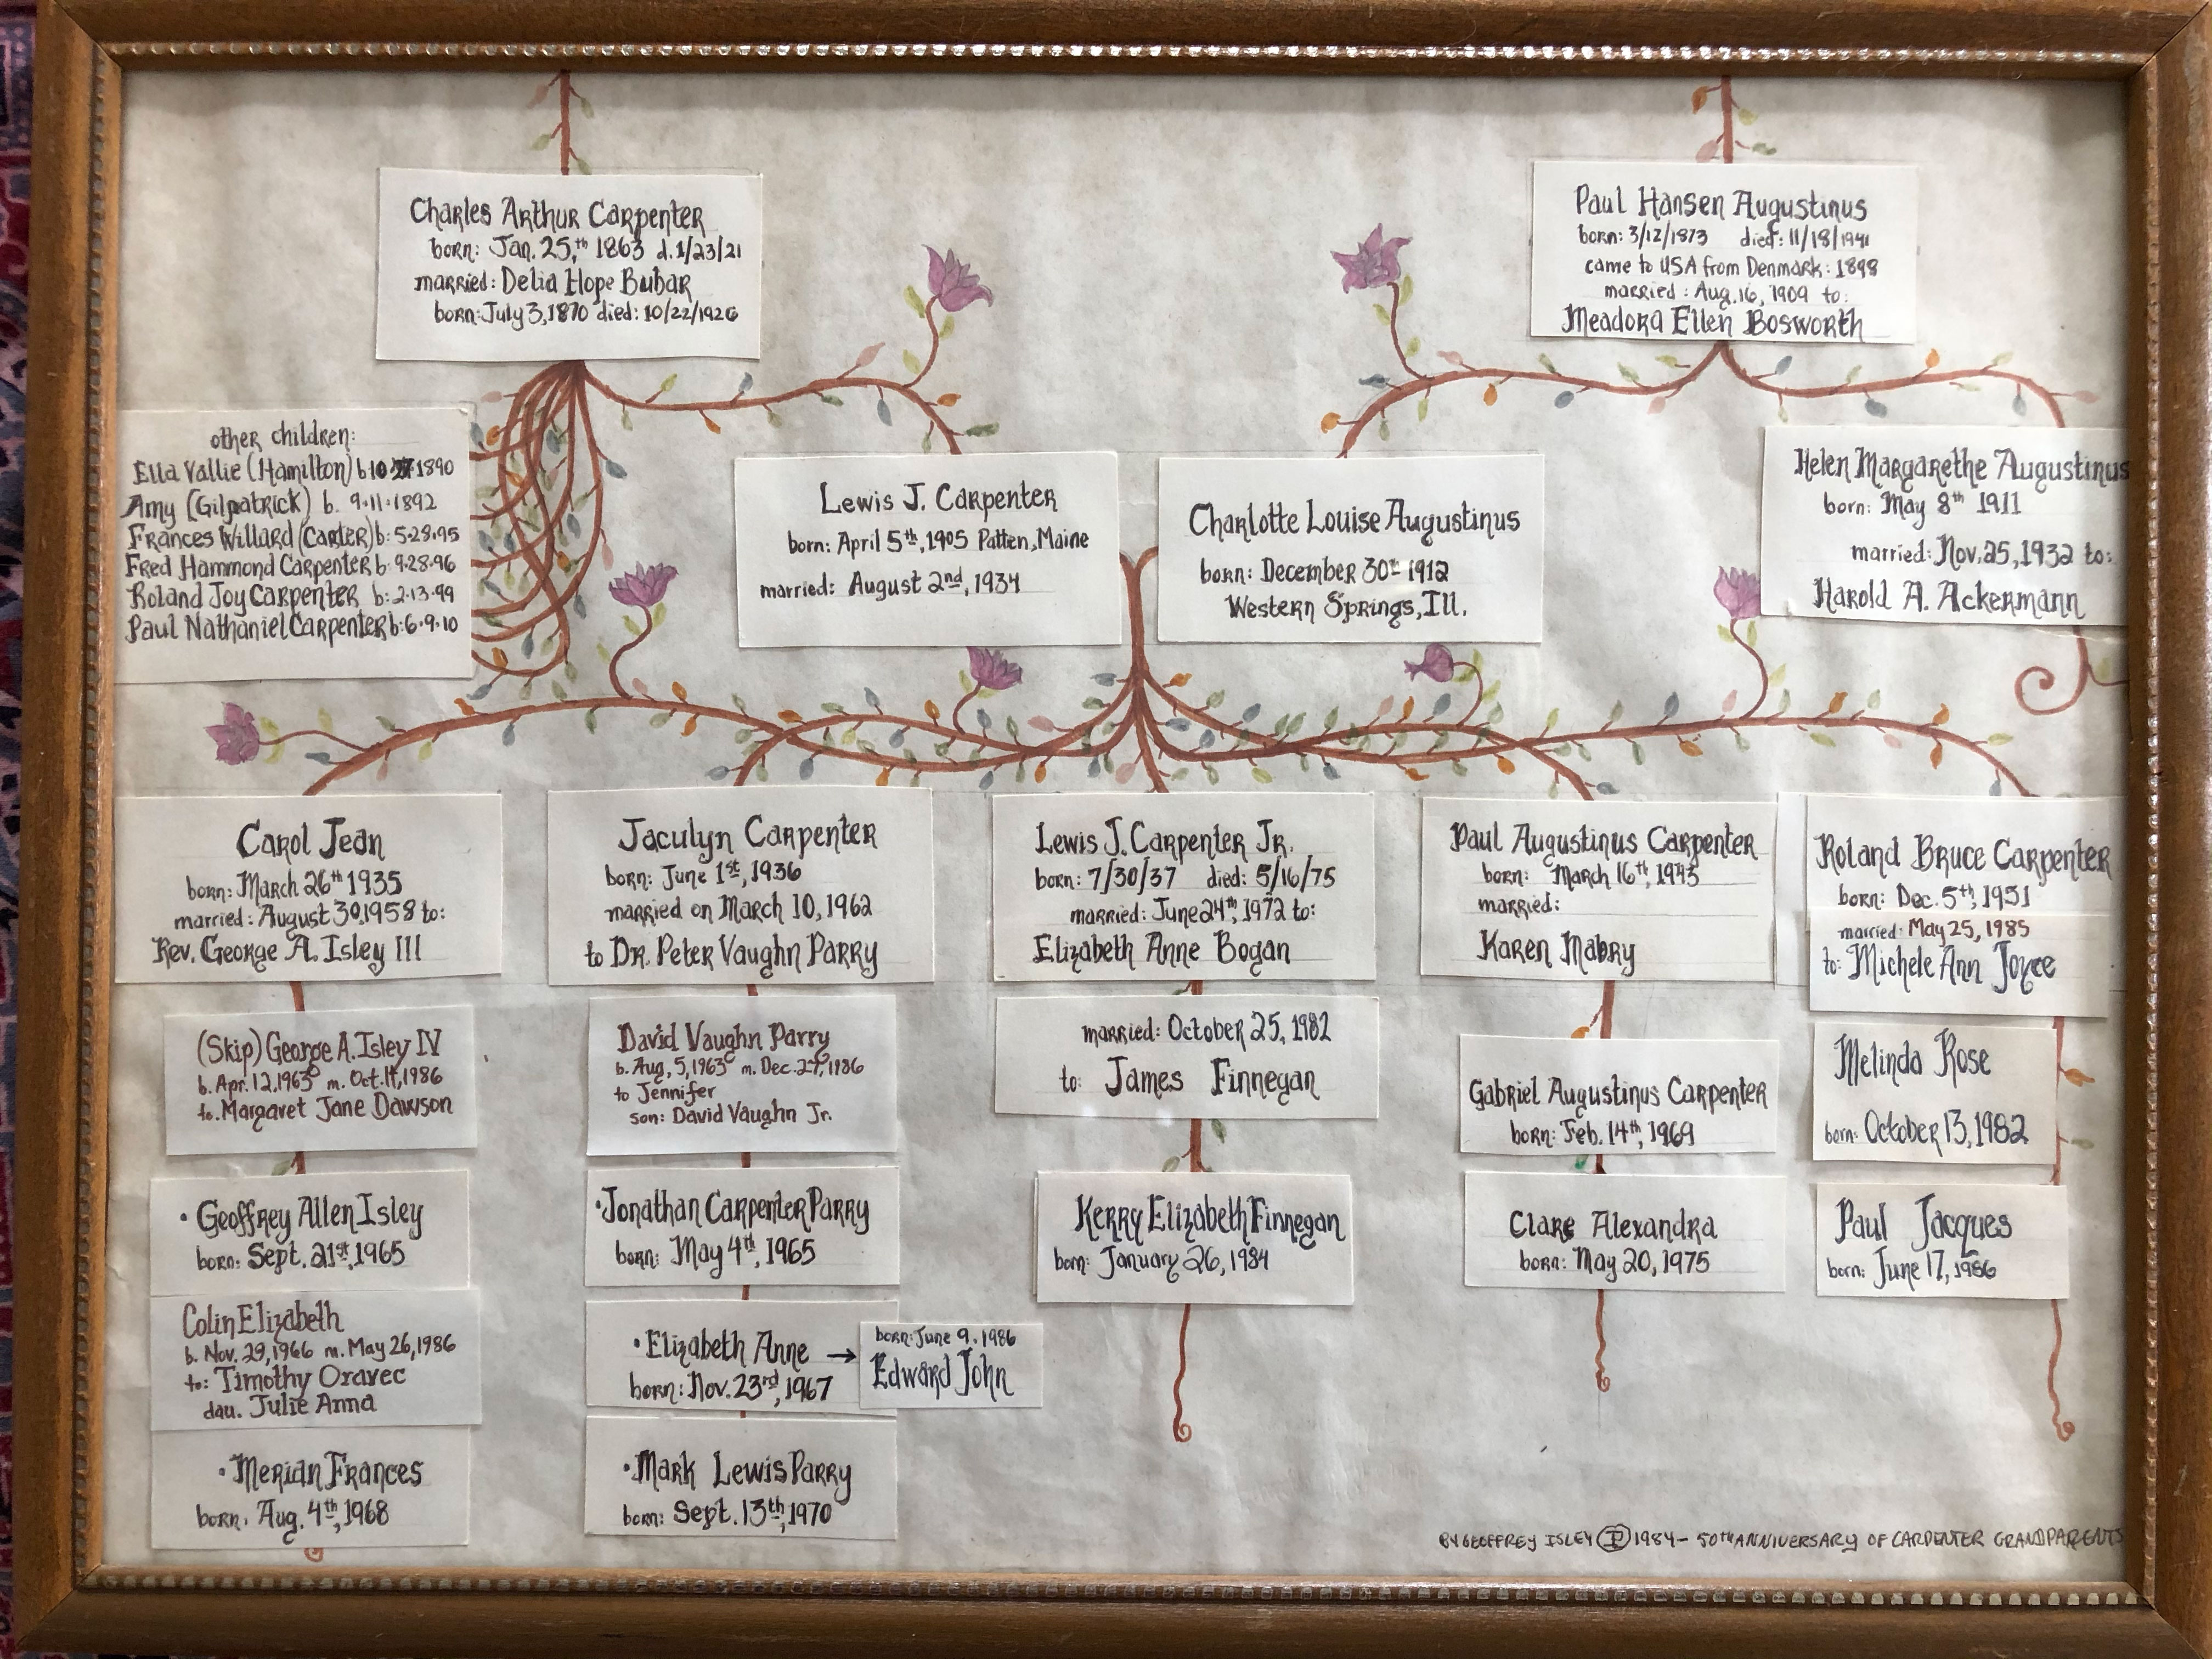 Charles Arthur Carpenter
born: Jan. 25,th 1863 d. 1/23/21
married: Delia Hope Bubar
born: July 3, 1870 died: 10/22/1926
Paul Hansen Augustinus
born: 3/12/1873 died: 11/18/1941
came to USA from Denmark: 1898
married: Aug. 16, 1909 to:
Meadora Ellen Bosworth
other children:
Ella Vallie (Hamilton) b 10 1890
Amy (Gilpatrick) b. 9·11·1892
Frances Willard (Carter) b: 5·28·95
Fred Hammond Carpenter b: 9·28·96
Roland Joy Carpenter b: 2·13·99
Paul Nathaniel Carpenter b: 6·9·10
Lewis J. Carpenter
born: April 5th, 1905 Patten, Maine
married: August 2nd, 1934
Charlotte Louise Augustinus
born: December 30th 1912
Western Springs, Ill.
Helen Margarethe Augustinus
born: May 8th 1911
married: Nov. 25, 1932 to:
Harold A. Ackermann
Carol Jean
born: March 26th 1935
married: August 30, 1958 to:
Rev. George A. Isley III
Jaculyn Carpenter
born: June 1st, 1936
married on March 10, 1962
to Dr. Peter Vaughn Parry
Lewis J. Carpenter Jr.
born: 7/30/37 died: 5/16/75
married: June 24th, 1972 to:
Elizabeth Anne Bogan
Paul Augustinus Carpenter
born: March 16th, 1943
married:
Karen Mabry
Roland Bruce Carpenter
born: Dec. 5th, 1951
married: May 25, 1985
to: Michele Ann Joyce
(Skip) George A. Isley IV
b. Apr. 12, 1963 m. Oct. 11, 1986
to. Margaret Jane Dawson
David Vaughn Parry
b. Aug. 5, 1963 m. Dec. 27, 1986
to Jennifer
son: David Vaughn Jr.
married: October 25, 1982
to: James Finnegan
Gabriel Augustinus Carpenter
born: Feb. 14th, 1969
Melinda Rose
born: October 13, 1982
· Geoffrey Allen Isley
born: Sept. 21st, 1965
· Jonathan Carpenter Parry
born: May 4th, 1965
Kerry Elizabeth Finnegan
born: January 26, 1984
Clare Alexandra
born: May 20, 1975
Paul Jacques
born: June 17, 1986
Colin Elizabeth
b. Nov. 29, 1966 m. May 26, 1986
to: Timothy Oravec
dau. Julie Anna
· Elizabeth Anne →
born: Nov. 23rd, 1967
born: June 9, 1986
Edward John
· Merian Frances
born. Aug. 4th, 1968
· Mark Lewis Parry
born: Sept. 13th, 1970
BY GEOFFREY ISLEY 1984 - 50TH ANNIVERSARY OF CARPENTER GRANDPARENTS